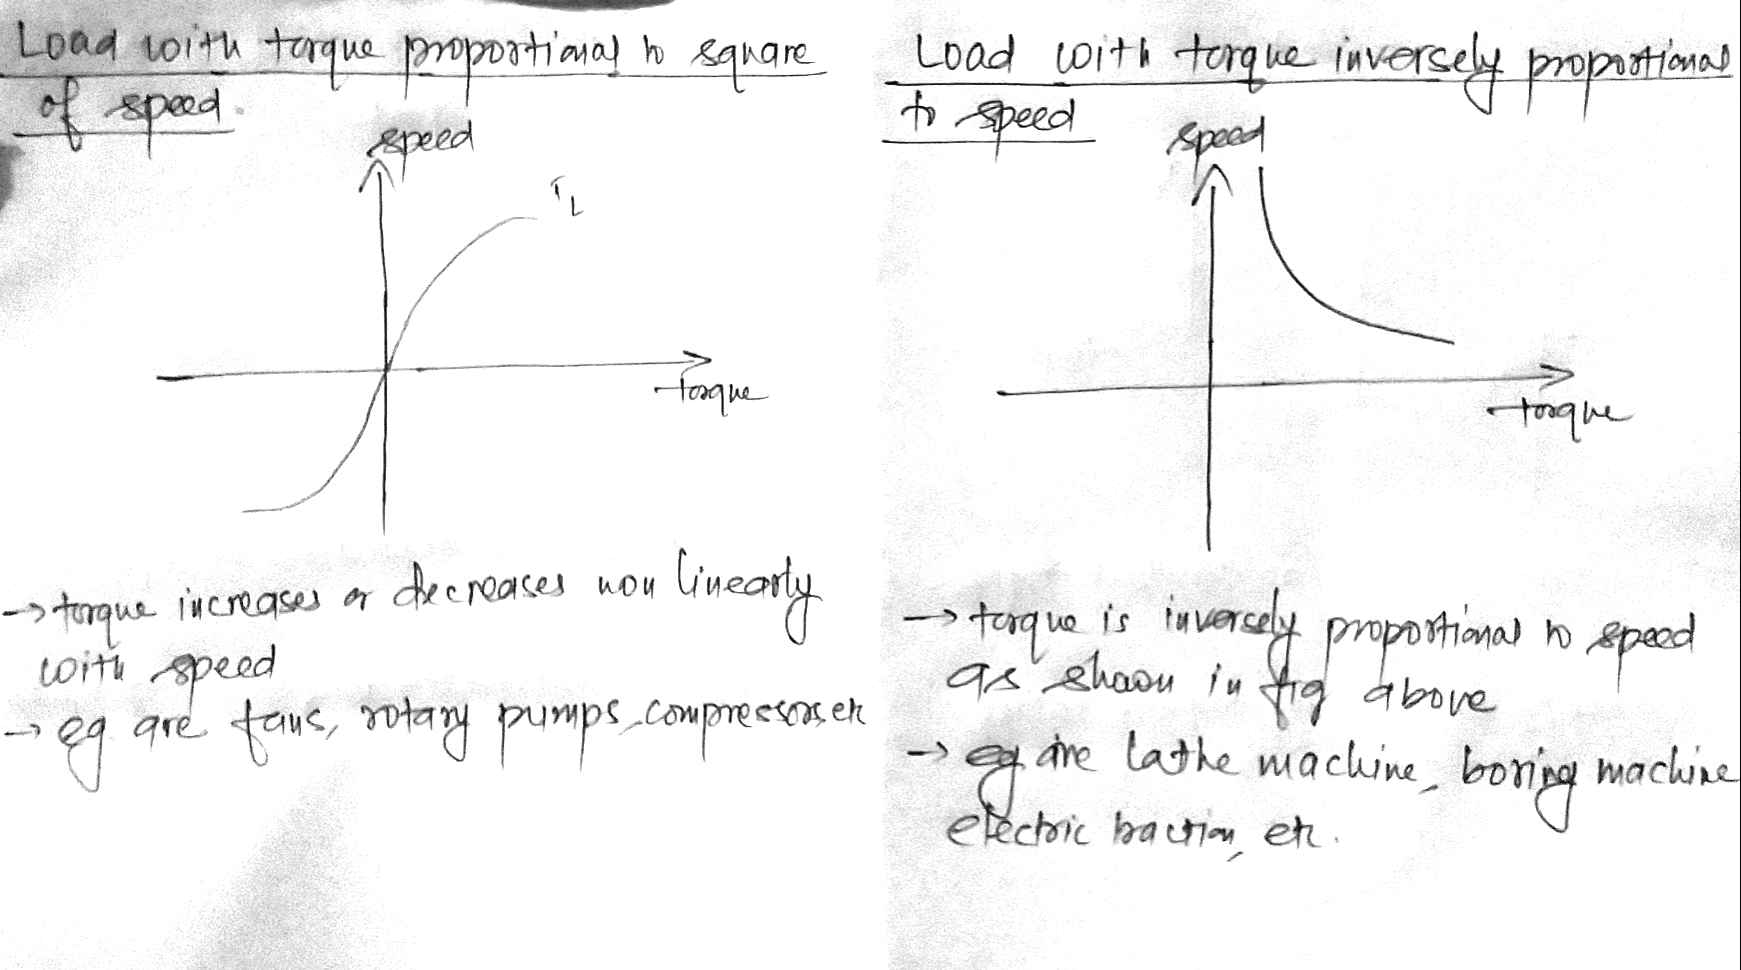 Load with torque proportional to square
of speed.
speed
TL
torque
→ torque increases or decreases non linearly
with speed
→ eg are fans, rotary pumps, compressors, etc
Load with torque inversely proportional
to speed
speed
torque
→ torque is inversely proportional to speed
as shown in fig above
→ eg are lathe machine, boring machine
electric traction, etc.